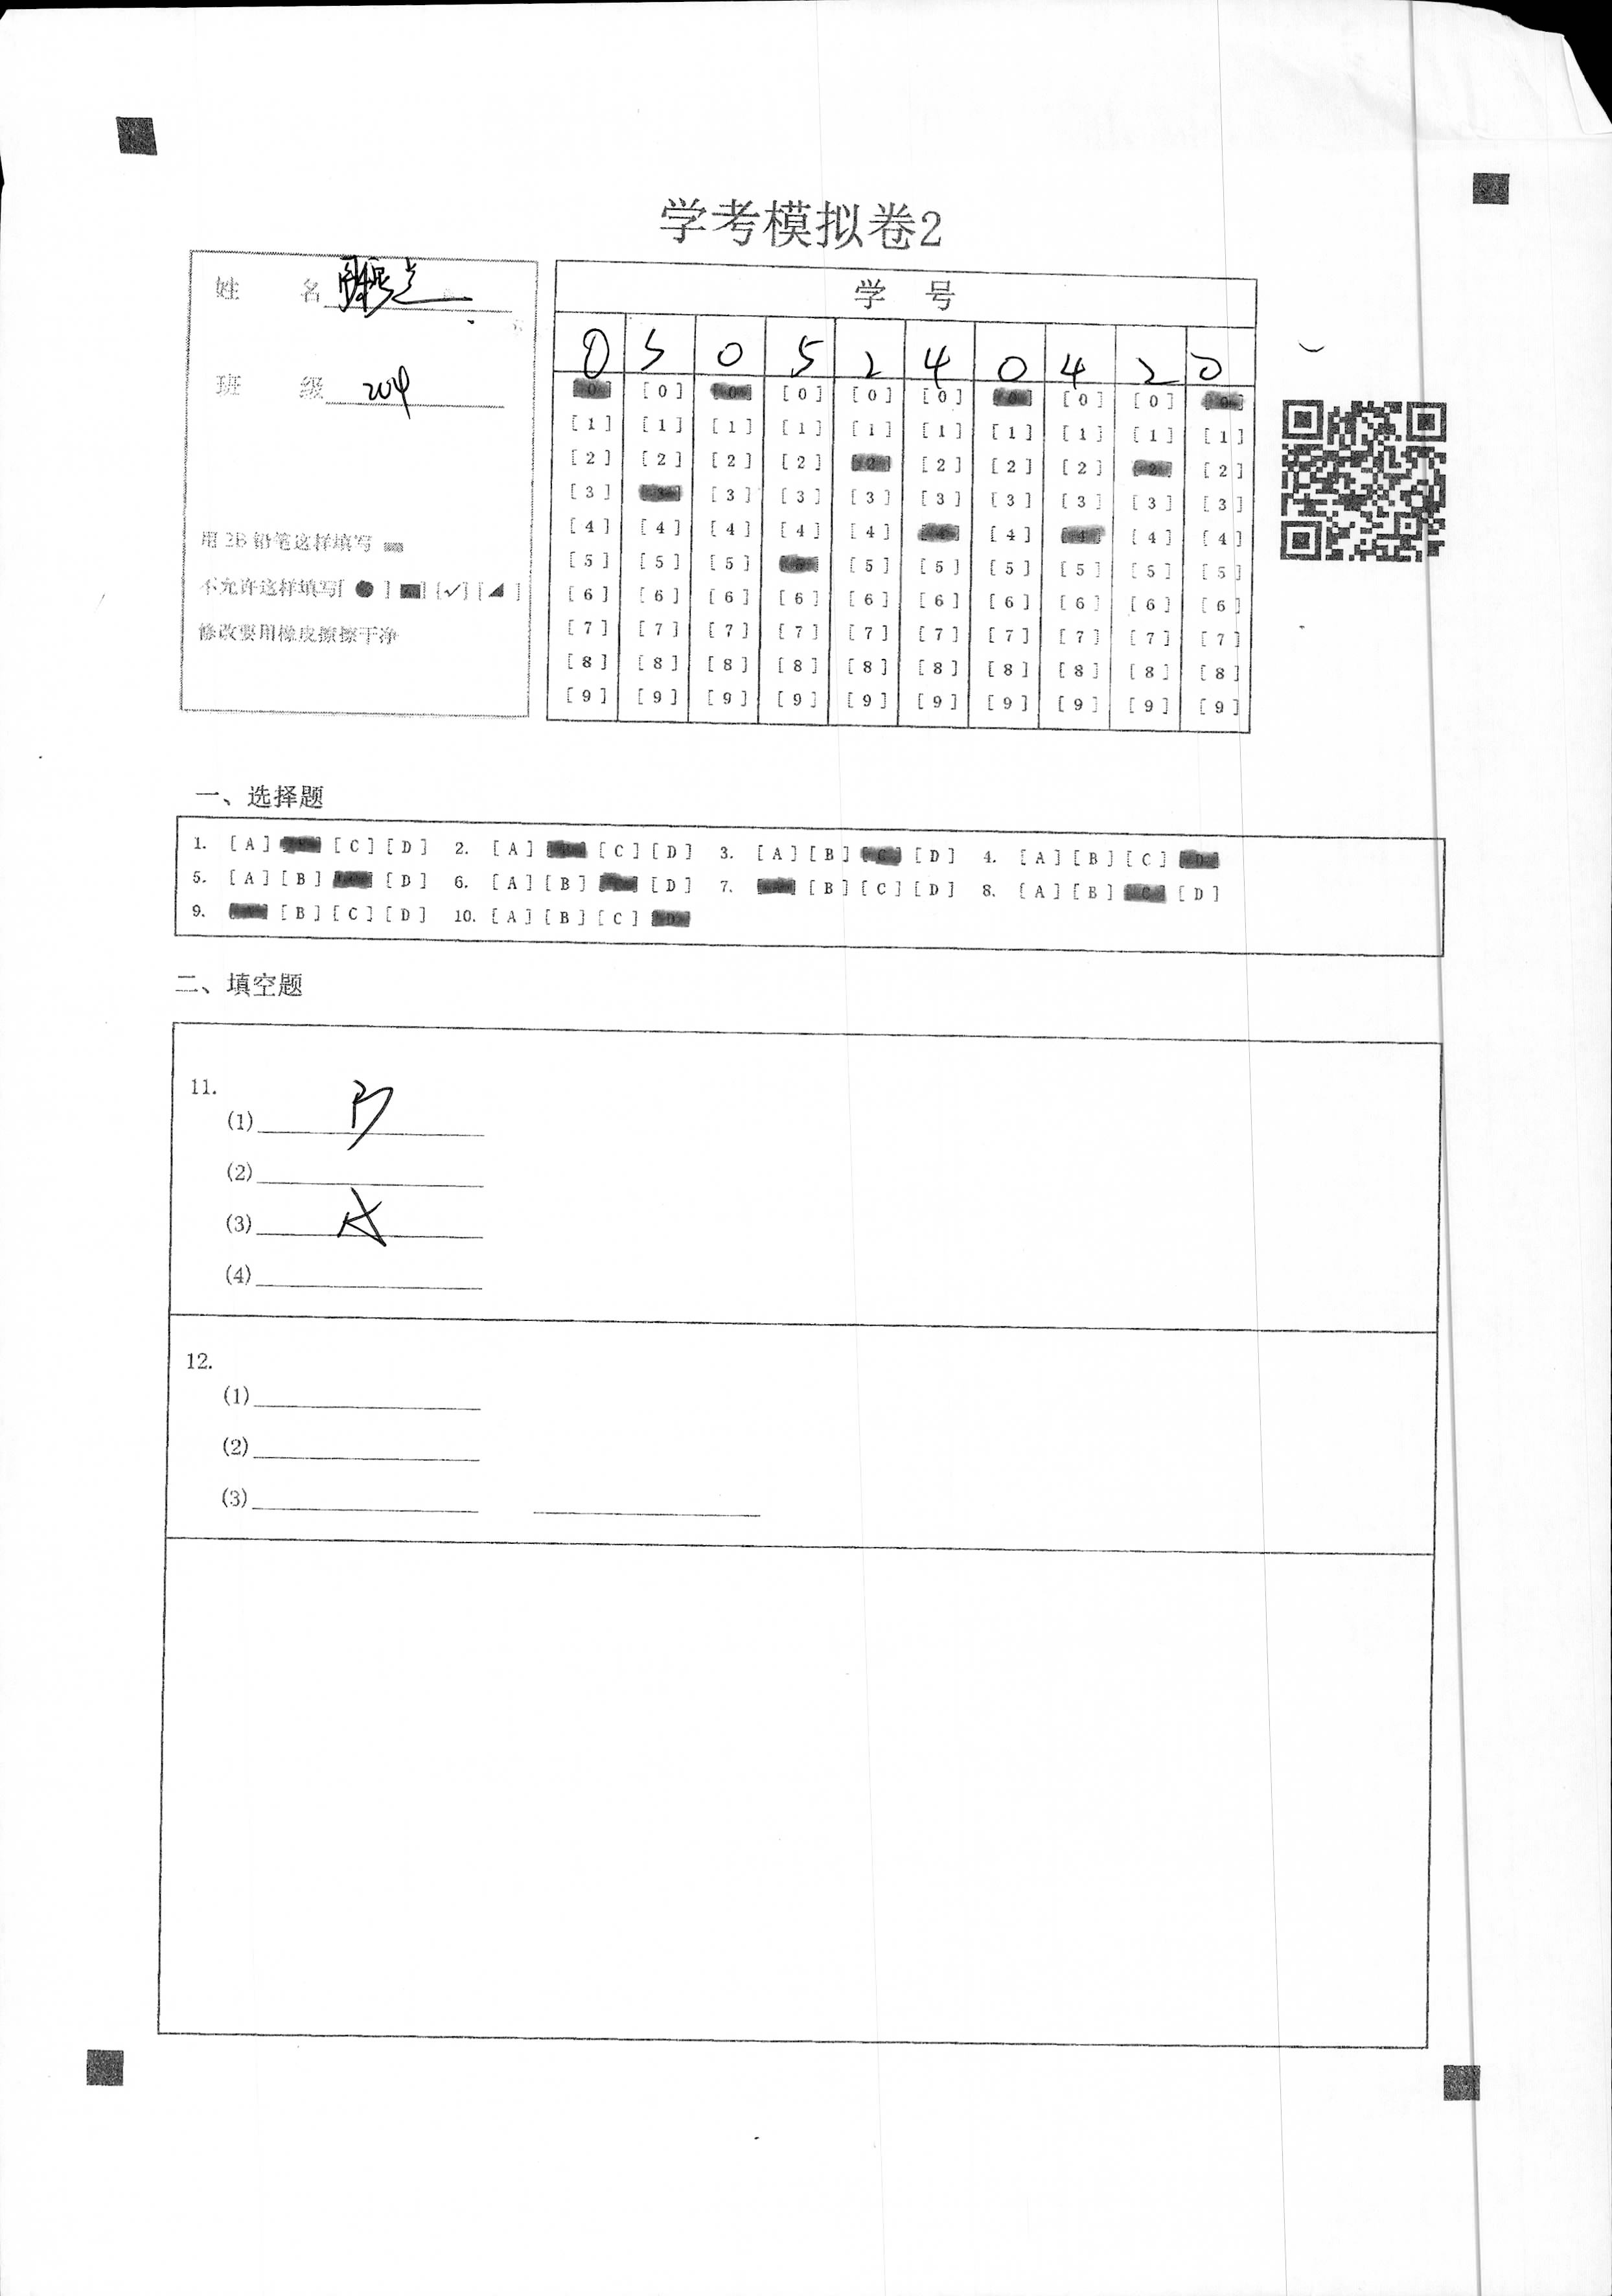 学考模拟卷2
姓 名
班 级 204
用 2B 铅笔这样填写
不允许这样填写[ ● ] [■] [✓] [◢ ]
修改要用橡皮擦擦干净
学 号
0 3 0 5 2 4 0 4 2 0
[0] [0] [0] [0] [0] [0] [0] [0] [0] [0]
[1] [1] [1] [1] [1] [1] [1] [1] [1] [1]
[2] [2] [2] [2] [2] [2] [2] [2] [2] [2]
[3] [3] [3] [3] [3] [3] [3] [3] [3]
[4] [4] [4] [4] [4] [4] [4] [4] [4] [4]
[5] [5] [5] [5] [5] [5] [5] [5] [5]
[6] [6] [6] [6] [6] [6] [6] [6] [6] [6]
[7] [7] [7] [7] [7] [7] [7] [7] [7] [7]
[8] [8] [8] [8] [8] [8] [8] [8] [8] [8]
[9] [9] [9] [9] [9] [9] [9] [9] [9] [9]
一、选择题
1. [A] [C] [D] 2. [A] [C] [D] 3. [A] [B] [C] [D] 4. [A] [B] [C] [D]
5. [A] [B] [D] 6. [A] [B] [D] 7. [B] [C] [D] 8. [A] [B] [C] [D]
9. [B] [C] [D] 10. [A] [B] [C] [D]
二、填空题
11.
(1) B
(2)
(3) A
(4)
12.
(1)
(2)
(3)